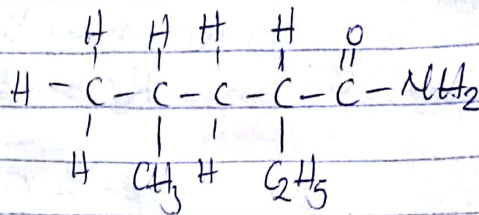 H H H H O
H - C - C - C - C - C - NH₂
H CH₃ H C₂H₅